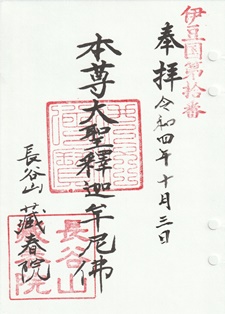 伊豆国第拾番
奉拝
令和四年十月三日
本尊大聖釋迦牟尼佛
長谷山
藏春院
長谷山